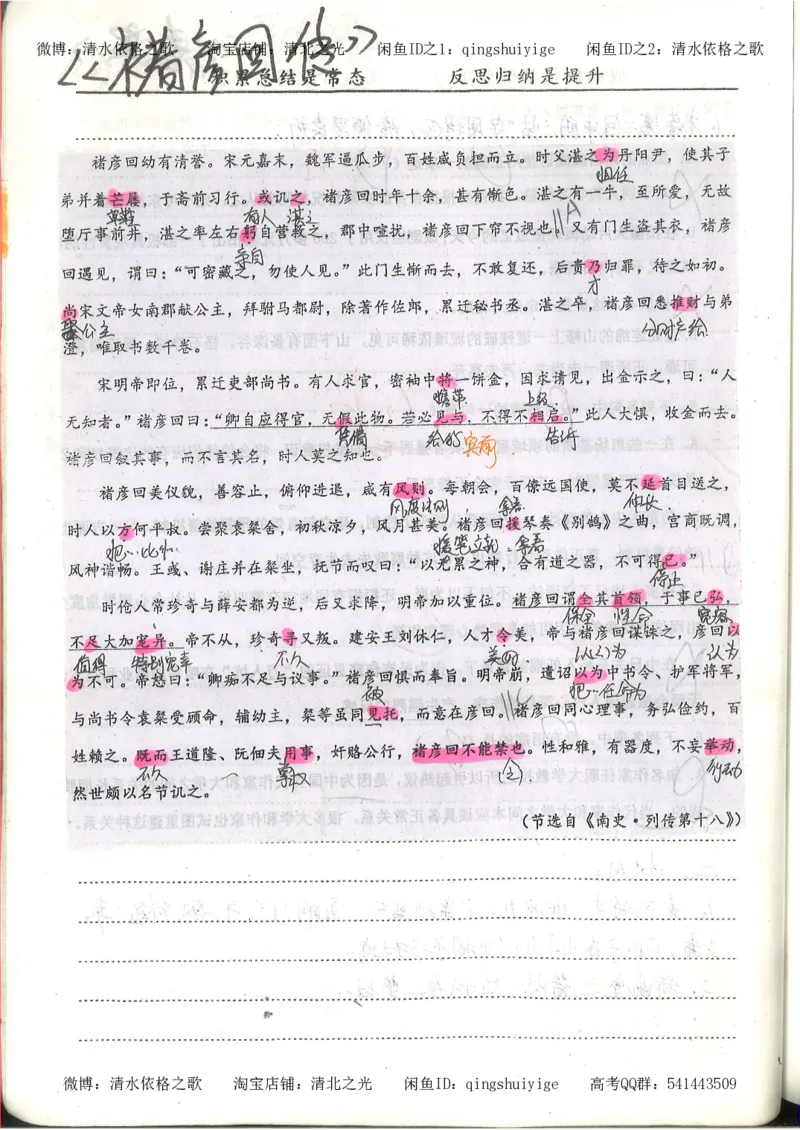 微博：清水依格之歌 淘宝店铺：清北之光 闲鱼ID之1：qingshuiyige 闲鱼ID之2：清水依格之歌
《褚彦回传》
积累总结是常态 反思归纳是提升
褚彦回幼有清誉。宋元嘉末，魏军逼瓜步，百姓咸负担而立。时父湛之为丹阳尹，使其子
担任
弟并着芒屩，于斋前习行。或讥之，褚彦回时年十余，甚有惭色。湛之有一牛，至所爱，无故
草鞋 有人 湛之
堕厅事前井，湛之率左右躬自营救之，郡中喧扰，褚彦回下帘不视也。∥A又有门生盗其衣，褚彦
亲自
回遇见，谓曰：“可密藏之，勿使人见。”此门生惭而去，不敢复还，后贵乃归罪，待之如初。
才
尚宋文帝女南郡献公主，拜驸马都尉，除著作佐郎，累迁秘书丞。湛之卒，褚彦回悉推财与弟
娶公主 分财产给
澄，唯取书数千卷。
宋明帝即位，累迁吏部尚书。有人求官，密袖中将一饼金，因求请见，出金示之，曰：“人
携带 上级
无知者。”褚彦回曰：“卿自应得官，无假此物。若必见与，不得不相启。”此人大惧，收金而去。
凭借 给我 宾前 告诉
褚彦回叙其事，而不言其名，时人莫之知也。
褚彦回美仪貌，善容止，俯仰进退，咸有风则。每朝会，百僚远国使，莫不延首目送之，
风度法则 伸长
时人以方何平叔。尝聚袁粲舍，初秋凉夕，风月甚美。褚彦回援琴奏《别鹄》之曲，宫商既调，
把…比作
风神谐畅。王彧、谢庄并在粲坐，抚节而叹曰：“以无累之神，合有道之器，不可得已。”
停止
时伧人常珍奇与薛安都为逆，后又求降，明帝加以重位。褚彦回谓全其首领，于事已弘，
保全 性命 宽容
不足大加宠异。帝不从，珍奇寻又叛。建安王刘休仁，人才令美，帝与褚彦回谋诛之，彦回以
值得 特别宠幸 不久 美好 认为
为不可。帝怒曰：“卿痴不足与议事。”褚彦回惧而奉旨。明帝崩，遗诏以为中书令、护军将军，
被 把…任命为
与尚书令袁粲受顾命，辅幼主，粲等虽同见托，而意在彦回。∥C褚彦回同心理事，务弘俭约，百
姓赖之。既而王道隆、阮佃夫用事，奸赂公行，褚彦回不能禁也。性和雅，有器度，不妄举动，
不久 掌权 行动
然世颇以名节讥之。
（节选自《南史·列传第十八》）
微博：清水依格之歌 淘宝店铺：清北之光 闲鱼ID：qingshuiyige 高考QQ群：541443509